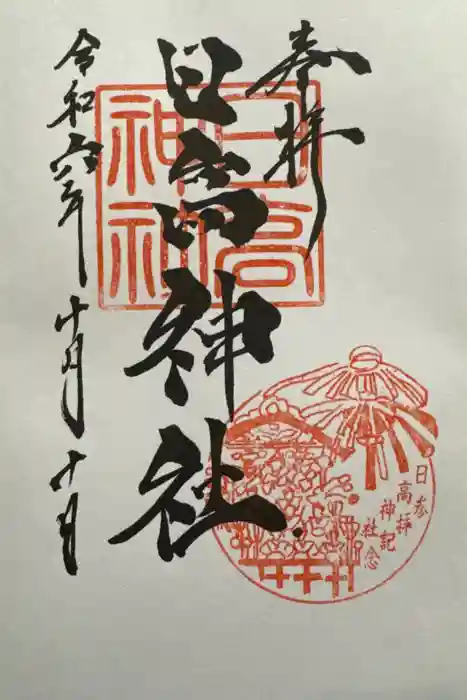 奉拝
日高神社
令和六年十月十日
日高神社
日高神社
参拝記念